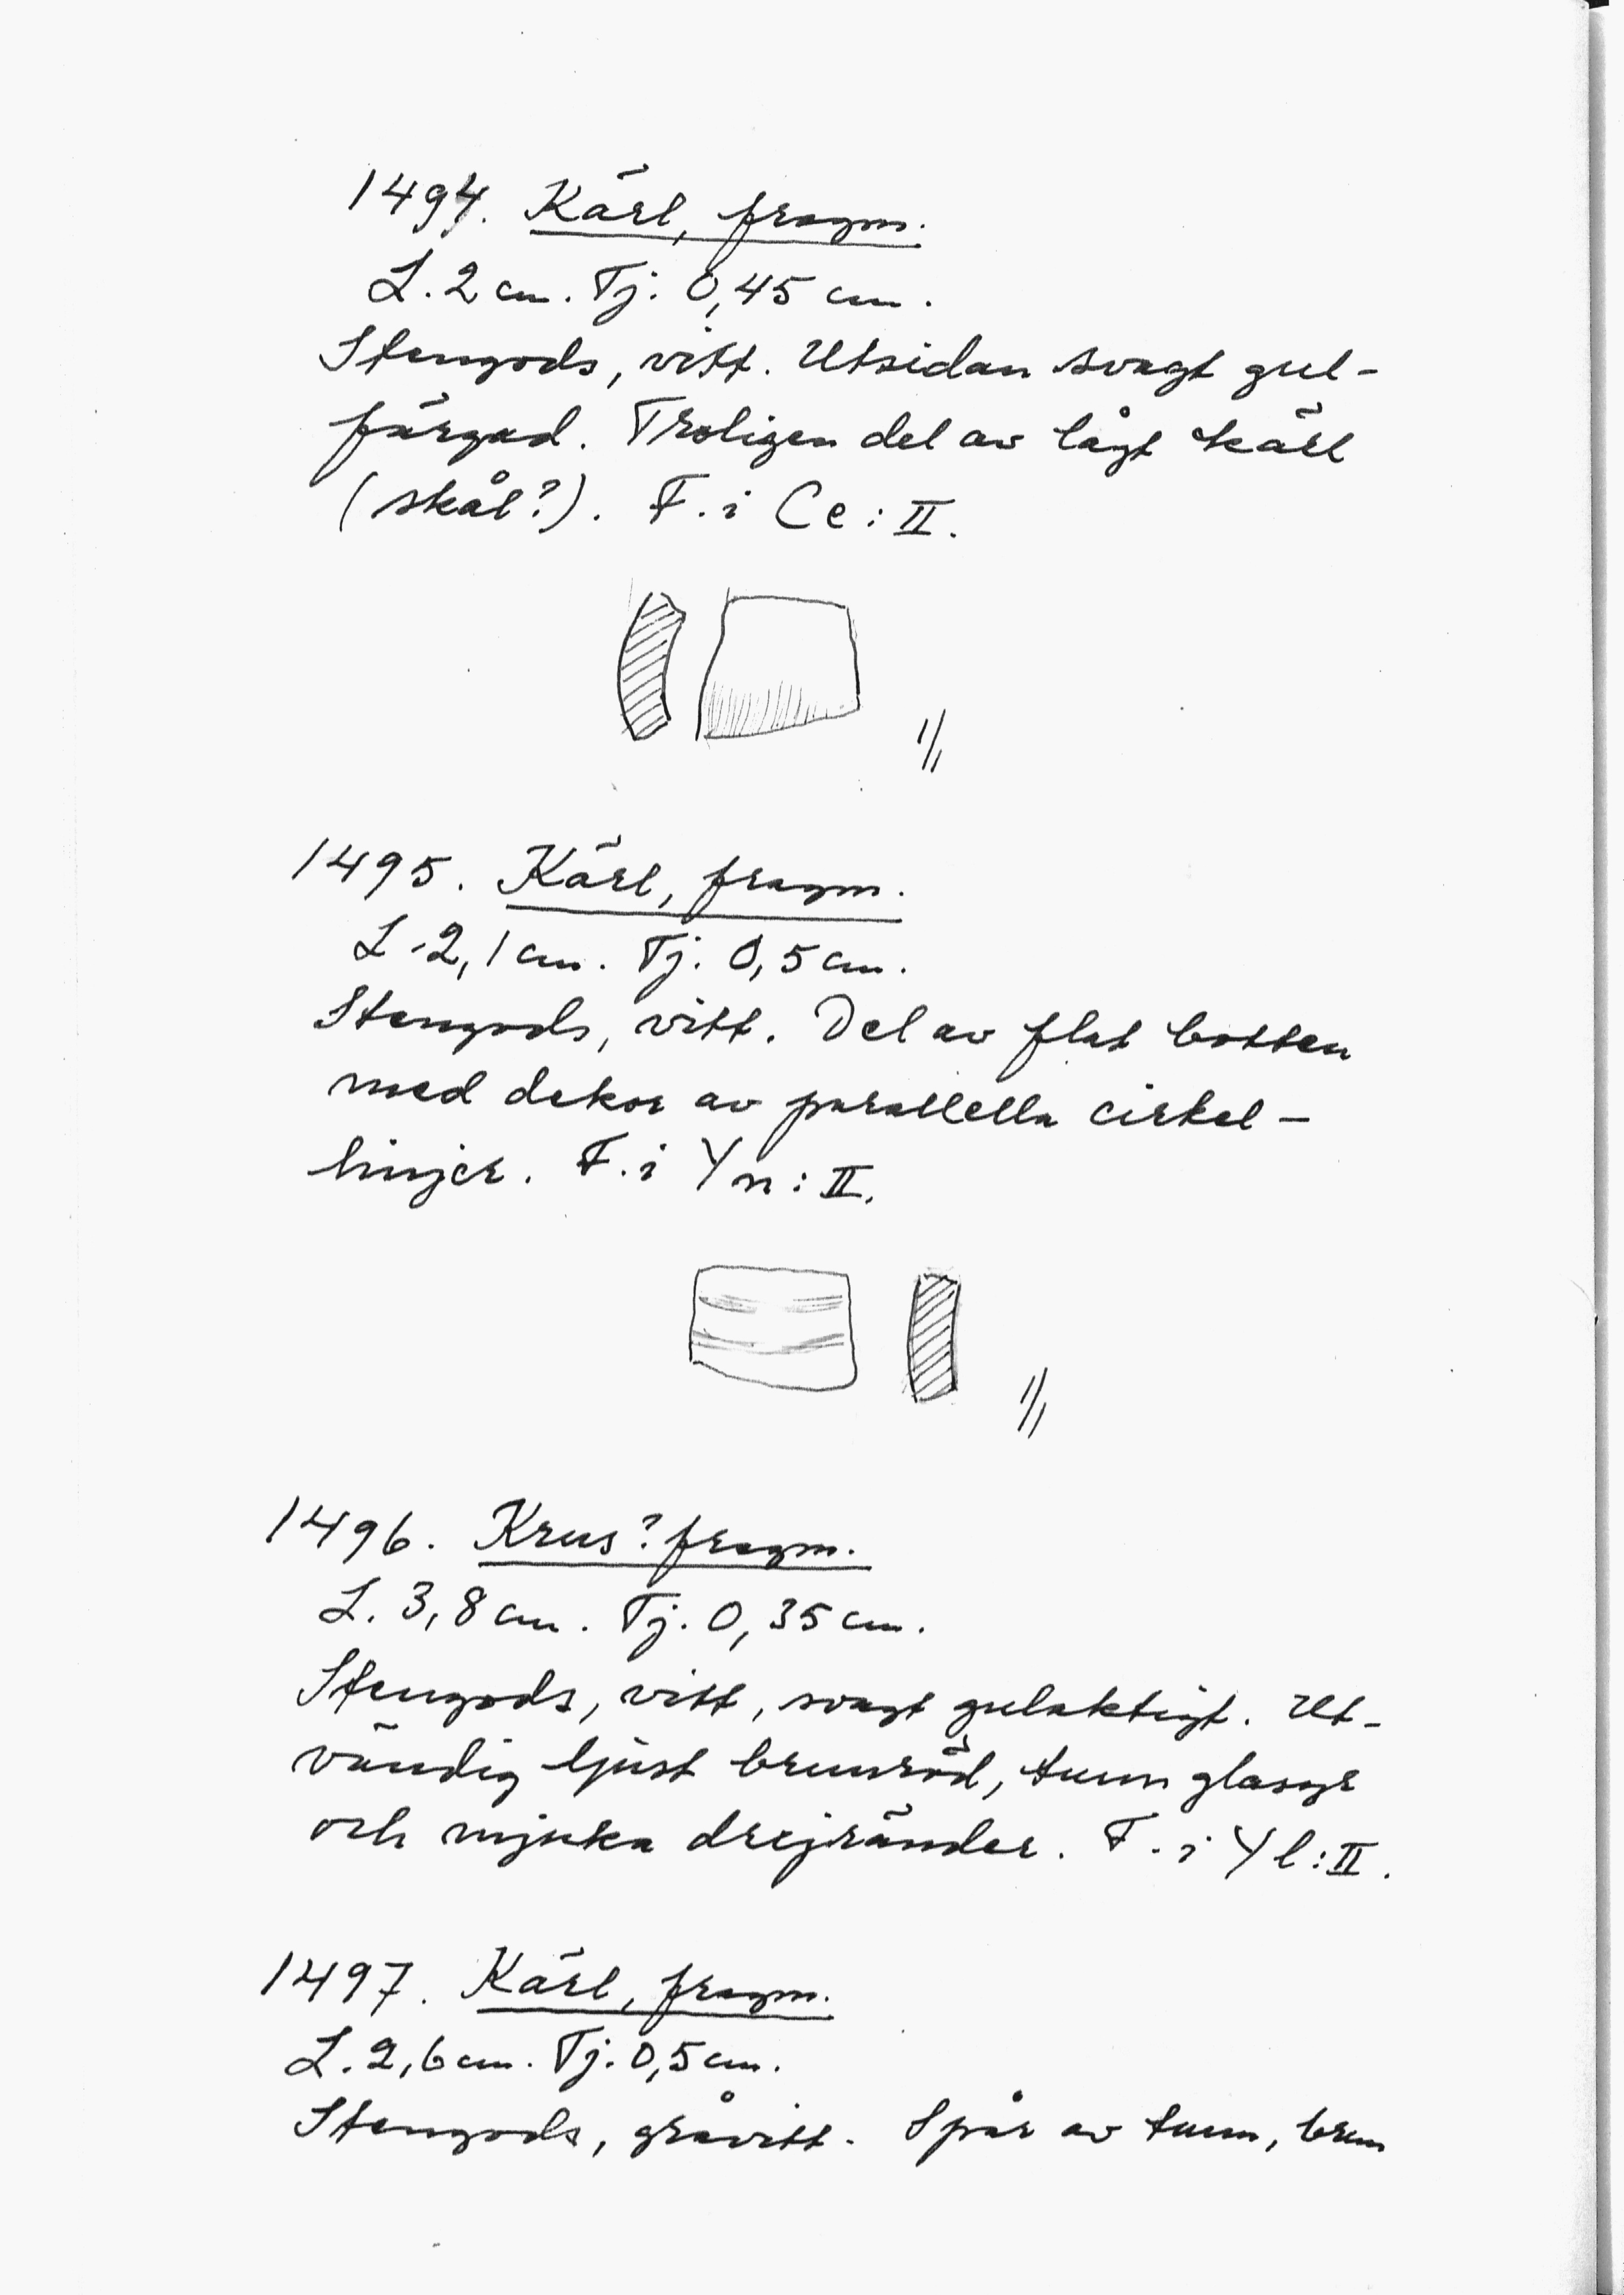 1494. Kärl, fragm.
L. 2 cm. Tj. 0,45 cm.
Stengods, vitt. Utsidan svagt gul-
färgad. Troligen del av lågt kärl
(skål?). F. i Ce: II.
1/1
1495. Kärl, fragm.
L. 2,1 cm. Tj. 0,5 cm.
Stengods, vitt. Del av flat botten
med dekor av parallella cirkel-
linjer. F. i Yn: II.
1/1
1496. Krus? fragm.
L. 3,8 cm. Tj. 0,35 cm.
Stengods, vitt, svagt gulaktigt. Ut-
vändig ljust brunröd, tunn glasyr
och mjuka drejränder. F. i Yl: II.
1497. Kärl, fragm.
L. 2,6 cm. Tj. 0,5 cm.
Stengods, gråvitt. Spår av tunn, brun